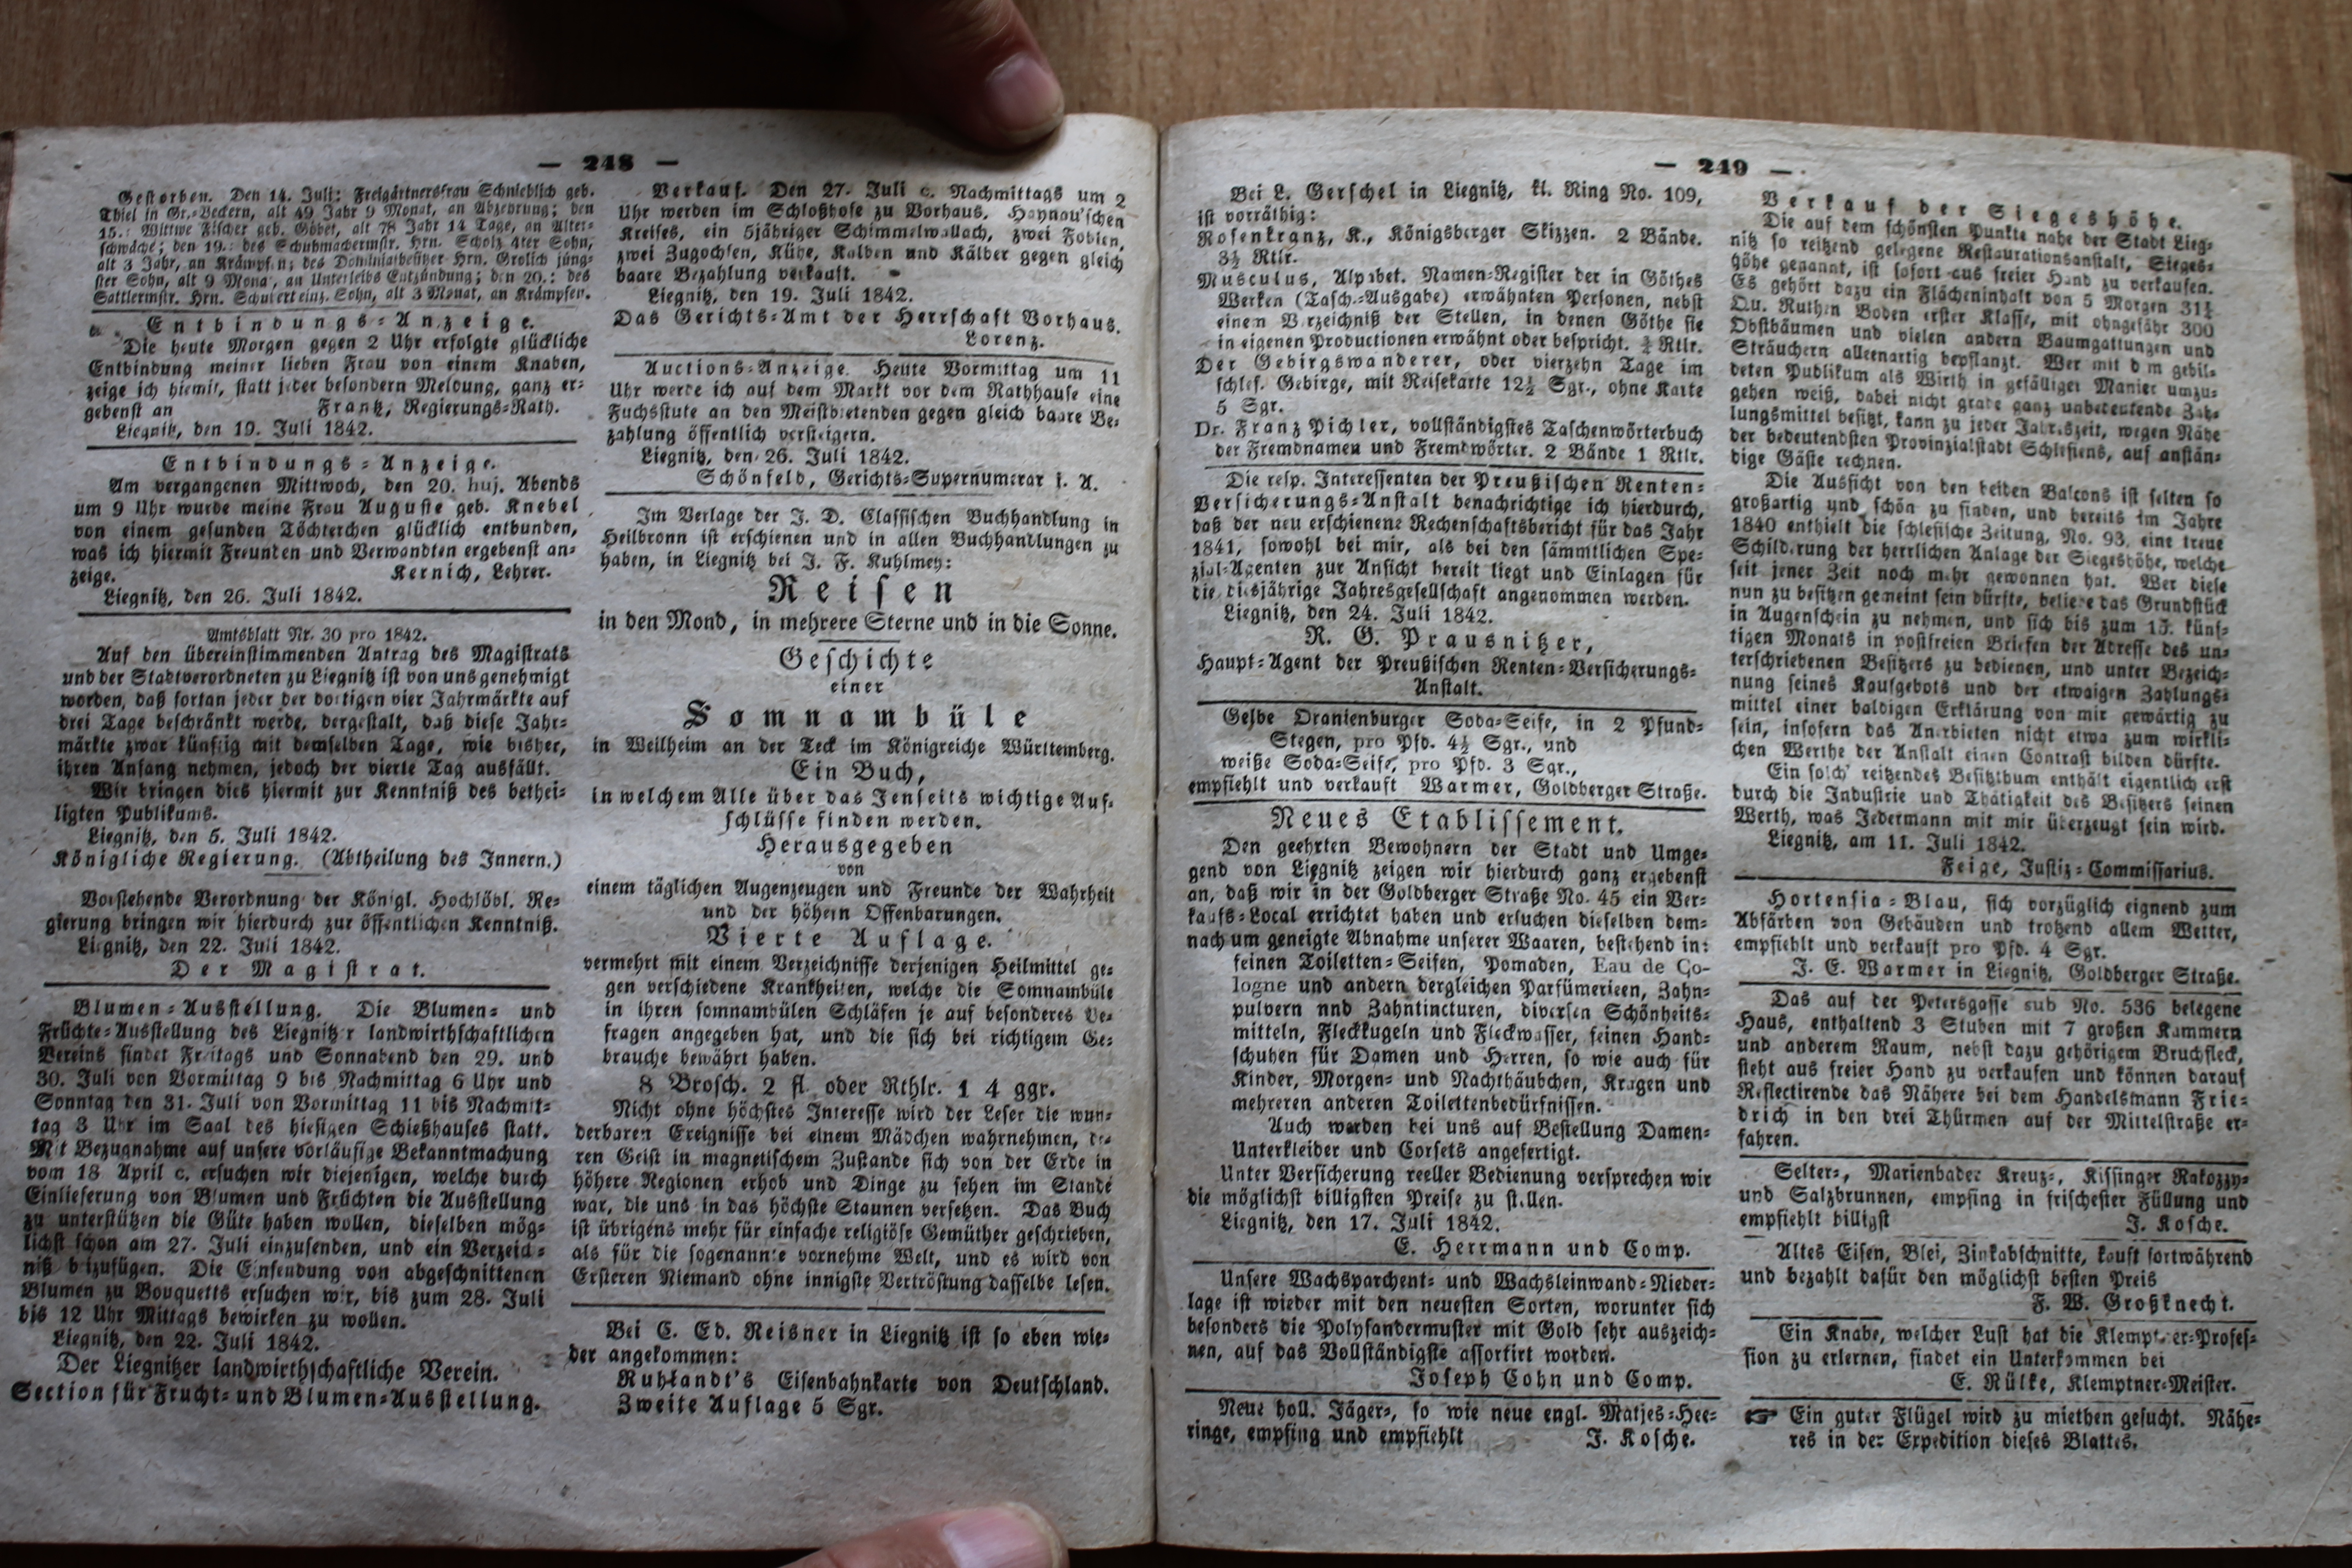 — 248 —
Gestorben. Den 14. Juli: Freigärtnersfrau Schnieblich geb.
Thiel in Gr.-Beckern, alt 49 Jahr 9 Monat, an Abzehrung; den
15.: Wittwe Fischer geb. Göbel, alt 78 Jahr 14 Tage, an Alter-
schwäche; den 19.: des Schuhmachermstr. Hrn. Scholz 4ter Sohn,
alt 3 Jahr, an Krämpfen; des Dominialbesitzer Hrn. Grolich jüng-
ster Sohn, alt 9 Mona', an Unterleibs Entzündung; den 20.: des
Sattlermstr. Hrn. Schubert einz. Sohn, alt 3 Monat, an Krämpfen.
Entbindungs-Anzeige.
Die heute Morgen gegen 2 Uhr erfolgte glückliche
Entbindung meiner lieben Frau von einem Knaben,
zeige ich hiemit, statt jeder besondern Meldung, ganz er-
gebenst an Frantz, Regierungs-Rath.
Liegnitz, den 19. Juli 1842.
Entbindungs-Anzeige.
Am vergangenen Mittwoch, den 20. huj. Abends
um 9 Uhr wurde meine Frau Auguste geb. Knebel
von einem gesunden Töchterchen glücklich entbunden,
was ich hiermit Freunden und Verwandten ergebenst an-
zeige. Kernich, Lehrer.
Liegnitz, den 26. Juli 1842.
Amtsblatt Nr. 30 pro 1842.
Auf den übereinstimmenden Antrag des Magistrats
und der Stadtverordneten zu Liegnitz ist von uns genehmigt
worden, daß fortan jeder der dortigen vier Jahrmärkte auf
drei Tage beschränkt werde, dergestalt, daß diese Jahr-
märkte zwar künftig mit demselben Tage, wie bisher,
ihren Anfang nehmen, jedoch der vierte Tag ausfällt.
Wir bringen dies hiermit zur Kenntniß des bethei-
ligten Publikums.
Liegnitz, den 5. Juli 1842.
Königliche Regierung. (Abtheilung des Innern.)
Vorstehende Verordnung der Königl. Hochlöbl. Re-
gierung bringen wir hierdurch zur öffentlichen Kenntniß.
Liegnitz, den 22. Juli 1842.
Der Magistrat.
Blumen-Ausstellung. Die Blumen- und
Früchte-Ausstellung des Liegnitzer landwirthschaftlichen
Vereins findet Freitags und Sonnabend den 29. und
30. Juli von Vormittag 9 bis Nachmittag 6 Uhr und
Sonntag den 31. Juli von Vormittag 11 bis Nachmit-
tag 3 Uhr im Saal des hiesigen Schießhauses statt.
Mit Bezugnahme auf unsere vorläufige Bekanntmachung
vom 18 April c. ersuchen wir diejenigen, welche durch
Einlieferung von Blumen und Früchten die Ausstellung
zu unterstützen die Güte haben wollen, dieselben mög-
lichst schon am 27. Juli einzusenden, und ein Verzeich-
niß beizufügen. Die Einsendung von abgeschnittenen
Blumen zu Bouquetts ersuchen wir, bis zum 28. Juli
bis 12 Uhr Mittags bewirken zu wollen.
Liegnitz, den 22. Juli 1842.
Der Liegnitzer landwirthschaftliche Verein.
Section für Frucht- und Blumen-Ausstellung.
Verkauf. Den 27. Juli c. Nachmittags um 2
Uhr werden im Schloßhofe zu Vorhaus, Haynau'schen
Kreises, ein 5jähriger Schimmelwallach, zwei Fohlen,
zwei Zugochsen, Kühe, Kalben und Kälber gegen gleich
baare Bezahlung verkauft.
Liegnitz, den 19. Juli 1842.
Das Gerichts-Amt der Herrschaft Vorhaus.
Lorenz.
Auctions-Anzeige. Heute Vormittag um 11
Uhr werde ich auf dem Markt vor dem Rathhause eine
Fuchsstute an den Meistbietenden gegen gleich baare Be-
zahlung öffentlich versteigern.
Liegnitz, den 26. Juli 1842.
Schönfeld, Gerichts-Supernumerar i. A.
Im Verlage der J. D. Classischen Buchhandlung in
Heilbronn ist erschienen und in allen Buchhandlungen zu
haben, in Liegnitz bei J. F. Kuhlmey:
Reisen
in den Mond, in mehrere Sterne und in die Sonne.
Geschichte
einer
Somnambüle
in Weilheim an der Teck im Königreiche Württemberg.
Ein Buch,
in welchem Alle über das Jenseits wichtige Auf-
schlüsse finden werden.
Herausgegeben
von
einem täglichen Augenzeugen und Freunde der Wahrheit
und der höhern Offenbarungen.
Vierte Auflage.
vermehrt mit einem Verzeichnisse derjenigen Heilmittel ge-
gen verschiedene Krankheiten, welche die Somnambüle
in ihren somnambülen Schläfen je auf besonderes Be-
fragen angegeben hat, und die sich bei richtigem Ge-
brauche bewährt haben.
8 Brosch. 2 fl. oder Rthlr. 1 4 ggr.
Nicht ohne höchstes Interesse wird der Leser die wun-
derbaren Ereignisse bei einem Mädchen wahrnehmen, de-
ren Geist in magnetischem Zustande sich von der Erde in
höhere Regionen erhob und Dinge zu sehen im Stande
war, die uns in das höchste Staunen versetzen. Das Buch
ist übrigens mehr für einfache religiöse Gemüther geschrieben,
als für die sogenannte vornehme Welt, und es wird von
Ersteren Niemand ohne innigste Vertröstung dasselbe lesen.
Bei C. Ed. Reisner in Liegnitz ist so eben wie-
der angekommen:
Ruhlandt's Eisenbahnkarte von Deutschland.
Zweite Auflage 5 Sgr.
— 249 —
Bei L. Gerschel in Liegnitz, kl. Ring No. 109,
ist vorräthig:
Rosenkranz, K., Königsberger Skizzen. 2 Bände.
3½ Rtlr.
Musculus, Alpabet. Namen-Register der in Göthes
Werken (Tasch.-Ausgabe) erwähnten Personen, nebst
einem Verzeichniß der Stellen, in denen Göthe sie
in eigenen Productionen erwähnt oder bespricht. Rtlr.
Der Gebirgswanderer, oder vierzehn Tage im
schles. Gebirge, mit Reisekarte 12½ Sgr., ohne Karte
5 Sgr.
Dr. Franz Pichler, vollständigstes Taschenwörterbuch
der Fremdnamen und Fremdwörter. 2 Bände 1 Rtlr.
Die resp. Interessenten der Preußischen Renten-
Versicherungs-Anstalt benachrichtige ich hierdurch,
daß der neu erschienene Rechenschaftsbericht für das Jahr
1841, sowohl bei mir, als bei den sämmtlichen Spe-
zial-Agenten zur Ansicht bereit liegt und Einlagen für
die diesjährige Jahresgesellschaft angenommen werden.
Liegnitz, den 24. Juli 1842.
R. G. Prausnitzer,
Haupt-Agent der Preußischen Renten-Versicherungs-
Anstalt.
Gelbe Oranienburger Soda-Seife, in 2 Pfund-
Stegen, pro Pfd. 4½ Sgr., und
weiße Soda-Seife, pro Pfd. 3 Sgr.,
empfiehlt und verkauft Warmer, Goldberger Straße.
Neues Etablissement.
Den geehrten Bewohnern der Stadt und Umge-
gend von Liegnitz zeigen wir hierdurch ganz ergebenst
an, daß wir in der Goldberger Straße No. 45 ein Ver-
kaufs-Local errichtet haben und ersuchen dieselben dem-
nach um geneigte Abnahme unserer Waaren, bestehend in:
feinen Toiletten-Seifen, Pomaden, Eau de Co-
logne und andern dergleichen Parfümerieen, Zahn-
pulvern nnd Zahntincturen, diversen Schönheits-
mitteln, Fleckkugeln und Fleckwasser, feinen Hand-
schuhen für Damen und Herren, so wie auch für
Kinder, Morgen- und Nachthäubchen, Kragen und
mehreren anderen Toilettenbedürfnissen.
Auch werden bei uns auf Bestellung Damen-
Unterkleider und Corsets angefertigt.
Unter Versicherung reeller Bedienung versprechen wir
die möglichst billigsten Preise zu stellen.
Liegnitz, den 17. Juli 1842.
E. Herrmann und Comp.
Unsere Wachsparchent- und Wachsleinwand-Nieder-
lage ist wieder mit den neuesten Sorten, worunter sich
besonders die Polysandermuster mit Gold sehr auszeich-
nen, auf das Vollständigste assortirt worden.
Joseph Cohn und Comp.
Neue holl. Jäger-, so wie neue engl. Matjes-Hee-
ringe, empfing und empfiehlt J. Kosche.
Verkauf der Siegeshöhe.
Die auf dem schönsten Punkte nahe der Stadt Lieg-
nitz so reitzend gelegene Restaurationsanstalt, Sieges-
höhe genannt, ist sofort aus freier Hand zu verkaufen.
Es gehört dazu ein Flächeninhalt von 5 Morgen 31½
Qu. Ruthen Boden erster Klasse, mit ohngefähr 300
Obstbäumen und vielen andern Baumgattungen und
Sträuchern allernartig bepflanzt. Wer mit dem gebil-
deten Publikum als Wirth in gefälliger Manier umzu-
gehen weiß, dabei nicht grade ganz unbedeutende Zah-
lungsmittel besitzt, kann zu jeder Jahreszeit, wegen Nähe
der bedeutendsten Provinzialstadt Schlesiens, auf anstän-
dige Gäste rechnen.
Die Aussicht von den beiden Balcons ist selten so
großartig und schön zu finden, und bereits im Jahre
1840 enthielt die schlesische Zeitung, No. 93, eine treue
Schilderung der herrlichen Anlage der Siegeshöhe, welche
seit jener Zeit noch mehr gewonnen hat. Wer diese
nun zu besitzen gemeint sein dürfte, beliebe das Grundstück
in Augenschein zu nehmen, und sich bis zum 15. künf-
tigen Monats in postfreien Briefen der Adresse des un-
terschriebenen Besitzers zu bedienen, und unter Bezeich-
nung seines Kaufgebots und der etwaigen Zahlungs-
mittel einer baldigen Erklärung von mir gewärtig zu
sein, insofern das Anerbieten nicht etwa zum wirkli-
chen Werthe der Anstalt einen Contrast bilden dürfte.
Ein solch' reitzendes Besitzthum enthält eigentlich erst
durch die Industrie und Thätigkeit des Besitzers seinen
Werth, was Jedermann mit mir überzeugt sein wird.
Liegnitz, am 11. Juli 1842.
Feige, Justiz-Commissarius.
Hortensia-Blau, sich vorzüglich eignend zum
Abfärben von Gebäuden und trotzend allem Wetter,
empfiehlt und verkauft pro Pfd. 4 Sgr.
J. E. Warmer in Liegnitz, Goldberger Straße.
Das auf der Petersgasse sub No. 536 belegene
Haus, enthaltend 3 Stuben mit 7 großen Kammern
und anderem Raum, nebst dazu gehörigem Bruchfleck,
steht aus freier Hand zu verkaufen und können darauf
Reflectirende das Nähere bei dem Handelsmann Frie-
drich in den drei Thürmen auf der Mittelstraße er-
fahren.
Selter-, Marienbader Kreuz-, Kissinger Rakozzy-
und Salzbrunnen, empfing in frischester Füllung und
empfiehlt billigst J. Kosche.
Altes Eisen, Blei, Zinkabschnitte, kauft fortwährend
und bezahlt dafür den möglichst besten Preis
F. W. Großknecht.
Ein Knabe, welcher Lust hat die Klemptner-Profes-
sion zu erlernen, findet ein Unterkommen bei
E. Rülke, Klemptner-Meister.
☞ Ein guter Flügel wird zu miethen gesucht. Nähe-
res in der Expedition dieses Blattes.